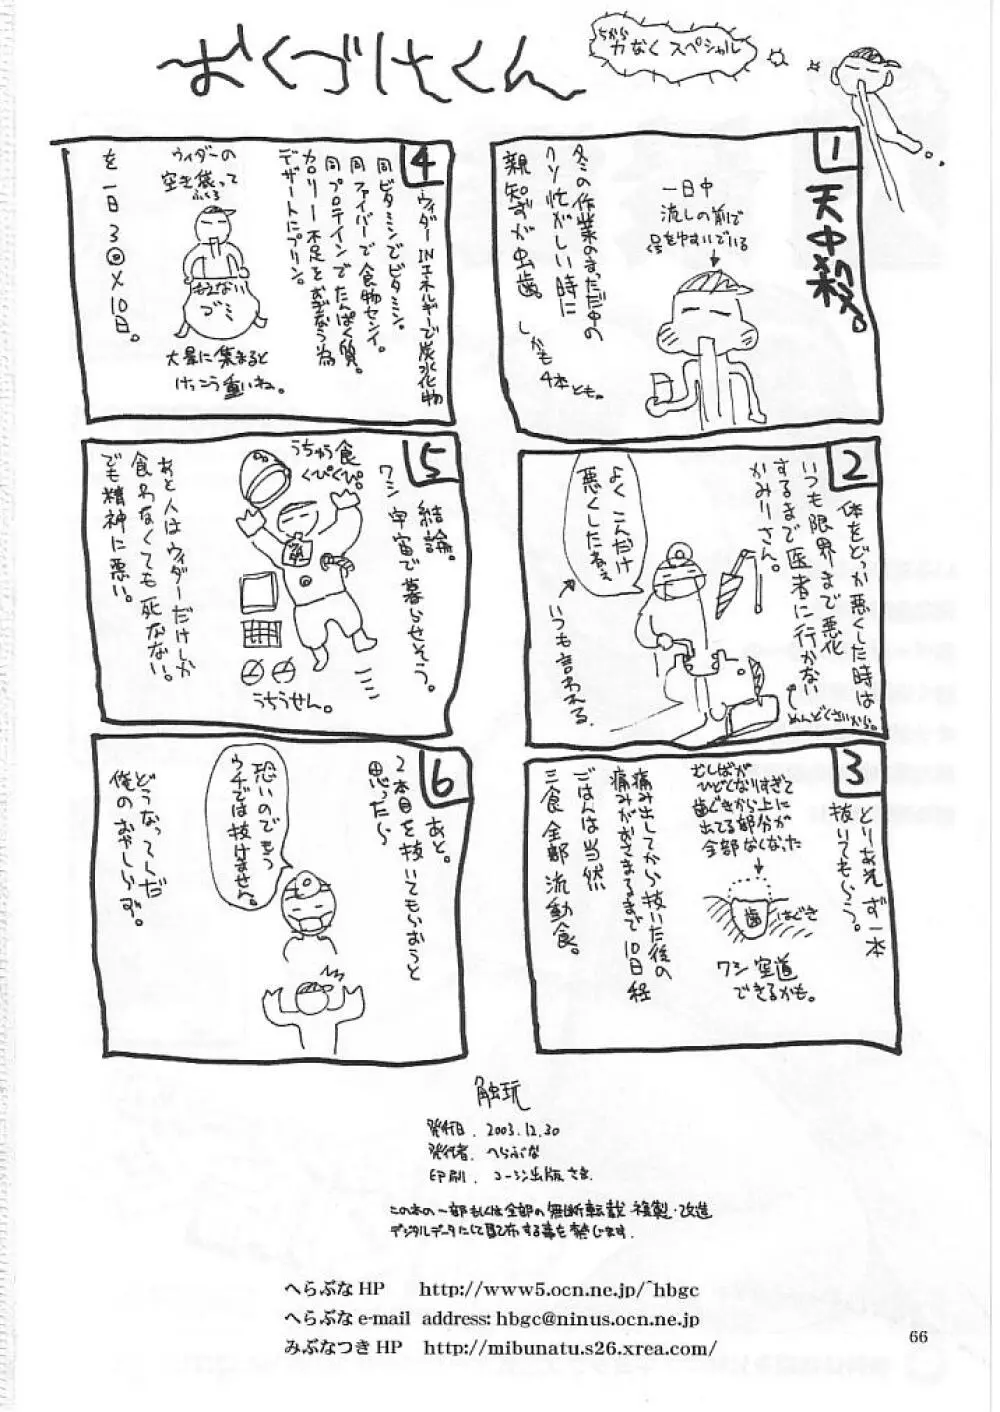 おくづけくん
ちから
力なくスペシャル
1
天中殺。
冬の作業のまっただ中の
クソ忙がしい時に
親知ずが虫歯。
しかも
4本とも。
一日中
流しの前で
口をゆすいでいる
2
体をどっか悪くした時は
いつも限界まで悪化
するまで医者に行かない
かみりさん。
めんどくさいから。
よくこんだけ
悪くしたねぇ
いつも言われる。
3
とりあえず一本
抜いてもらう。
むしばが
ひどくなりすぎて
歯ぐきから上に
出てる部分が
全部なくなった
歯
はぐき
ワシ空道
できるかも。
痛み出してから抜いた後の
痛みがおさまるまで10日程
ごはんは当然
三食全部流動食。
4
ウィダーINエネルギーで炭水化物
同ビタミンでビタミン。
同ファイバーで食物センイ。
同プロテインでたんぱく質。
カロリー不足をおぎなう為
デザートにプリン。
を一日3回×10日。
ウィダーの
空き袋って
ふくろ
もえない
ゴミ
大量に集まると
けっこう重いね。
5
結論。
ワシ宇宙で暮らせそう。
うちゅう食
くぴくぴ。
ここ
うちうせん。
あと人はウィダーだけしか
食わなくても死なない。
でも精神に悪い。
6
あと。
2本目を抜いてもらおうと
思ったら
恐いのでもう
ウチでは抜けません。
どうなってんだ
俺のおやしらず。
触玩
発行日. 2003.12.30
発行者. へらぶな
印刷. コーシン出版さま
この本の一部もしくは全部の無断転載・複製・改造
デジタルデータにして配布する事を禁じます.
へらぶなHP http://www5.ocn.ne.jp/~hbgc
へらぶな e-mail address: hbgc@ninus.ocn.ne.jp
みぶなつきHP http://mibunatu.s26.xrea.com/
66